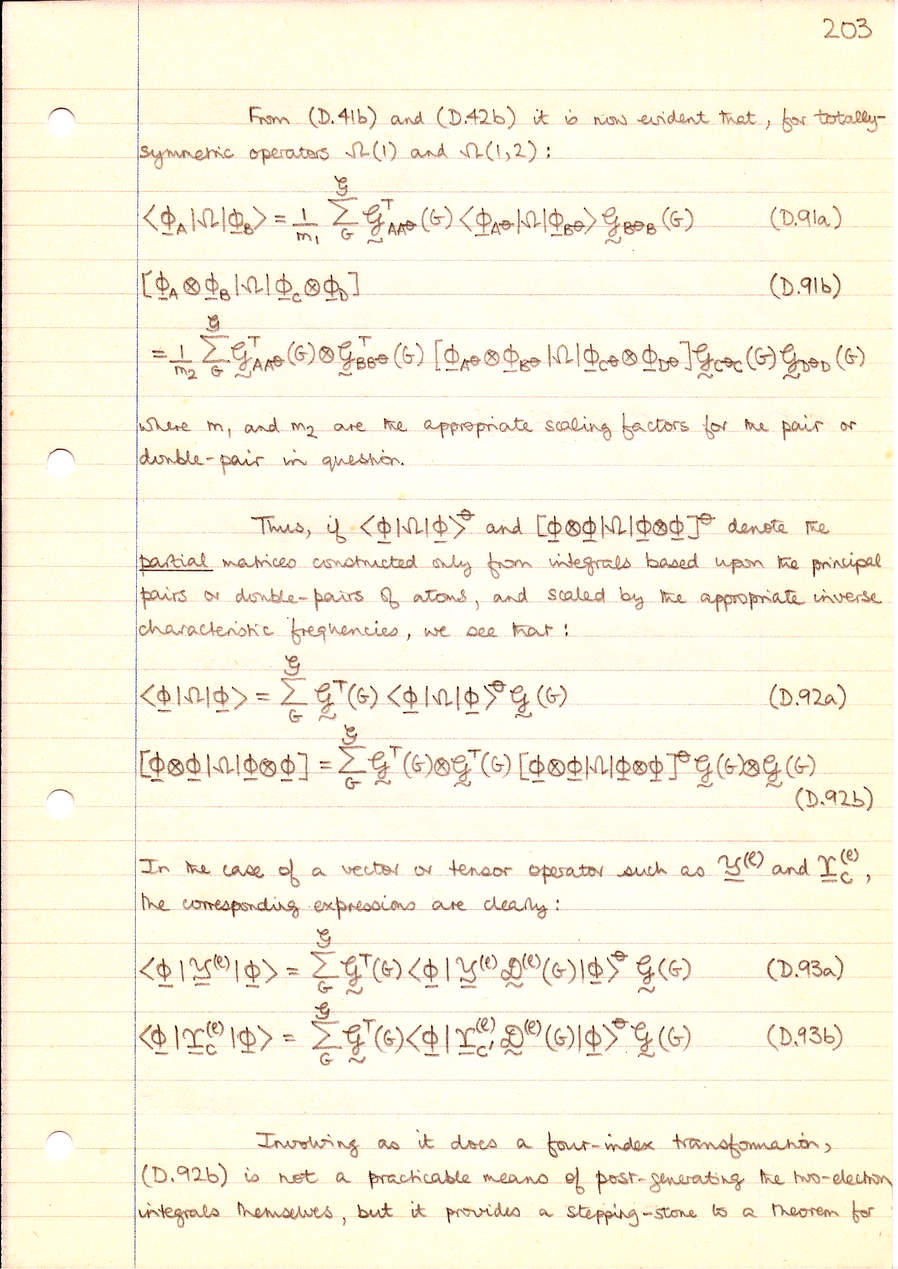 203
From (D.41b) and (D.42b) it is now evident that, for totally-
symmetric operators Ω(1) and Ω(1,2):
⟨Φ_A|Ω|Φ_B⟩ = 1/m₁ Σ_G^𝒢 𝒢ᵀ_AAϴ(G) ⟨Φ_Aϴ|Ω|Φ_Bϴ⟩ 𝒢_BϴB(G) (D.91a)
[Φ_A⊗Φ_B|Ω|Φ_C⊗Φ_D] (D.91b)
= 1/m₂ Σ_G^𝒢 𝒢ᵀ_AAϴ(G)⊗𝒢ᵀ_BBϴ(G) [Φ_Aϴ⊗Φ_Bϴ|Ω|Φ_Cϴ⊗Φ_Dϴ] 𝒢_CϴC(G) 𝒢_DϴD(G)
where m₁ and m₂ are the appropriate scaling factors for the pair or
double-pair in question.
Thus, if ⟨Φ|Ω|Φ⟩^ϴ and [Φ⊗Φ|Ω|Φ⊗Φ]^ϴ denote the
partial matrices constructed only from integrals based upon the principal
pairs or double-pairs of atoms, and scaled by the appropriate inverse
characteristic frequencies, we see that:
⟨Φ|Ω|Φ⟩ = Σ_G^𝒢 𝒢ᵀ(G) ⟨Φ|Ω|Φ⟩^ϴ 𝒢(G) (D.92a)
[Φ⊗Φ|Ω|Φ⊗Φ] = Σ_G^𝒢 𝒢ᵀ(G)⊗𝒢ᵀ(G) [Φ⊗Φ|Ω|Φ⊗Φ]^ϴ 𝒢(G)⊗𝒢(G)
(D.92b)
In the case of a vector or tensor operator such as 𝒴^(ℓ) and ϒ_C^(ℓ),
the corresponding expressions are clearly:
⟨Φ|𝒴^(ℓ)|Φ⟩ = Σ_G^𝒢 𝒢ᵀ(G) ⟨Φ|𝒴^(ℓ) 𝒟^(ℓ)(G)|Φ⟩^ϴ 𝒢(G) (D.93a)
⟨Φ|ϒ_C^(ℓ)|Φ⟩ = Σ_G^𝒢 𝒢ᵀ(G) ⟨Φ|ϒ_C'^(ℓ) 𝒟^(ℓ)(G)|Φ⟩^ϴ 𝒢(G) (D.93b)
Involving as it does a four-index transformation,
(D.92b) is not a practicable means of post-generating the two-electron
integrals themselves, but it provides a stepping-stone to a theorem for